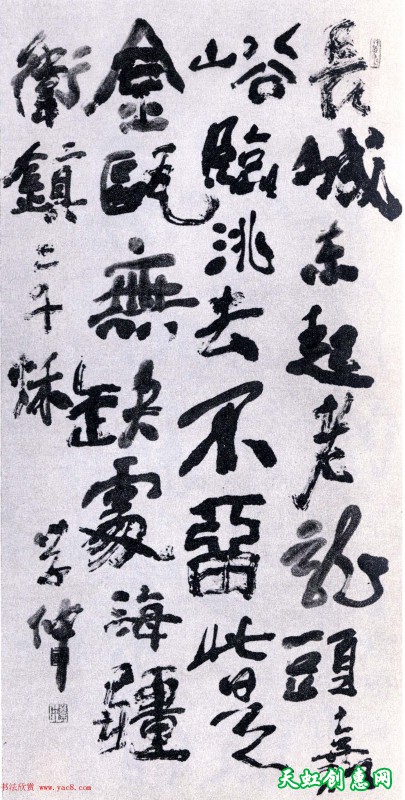 長城東起老龍頭嘉
峪臨洮去不留此是
金甌無缺處海疆
衛鎮二千秋
学仲
书法欣赏 www.yac8.com
天虹创意网